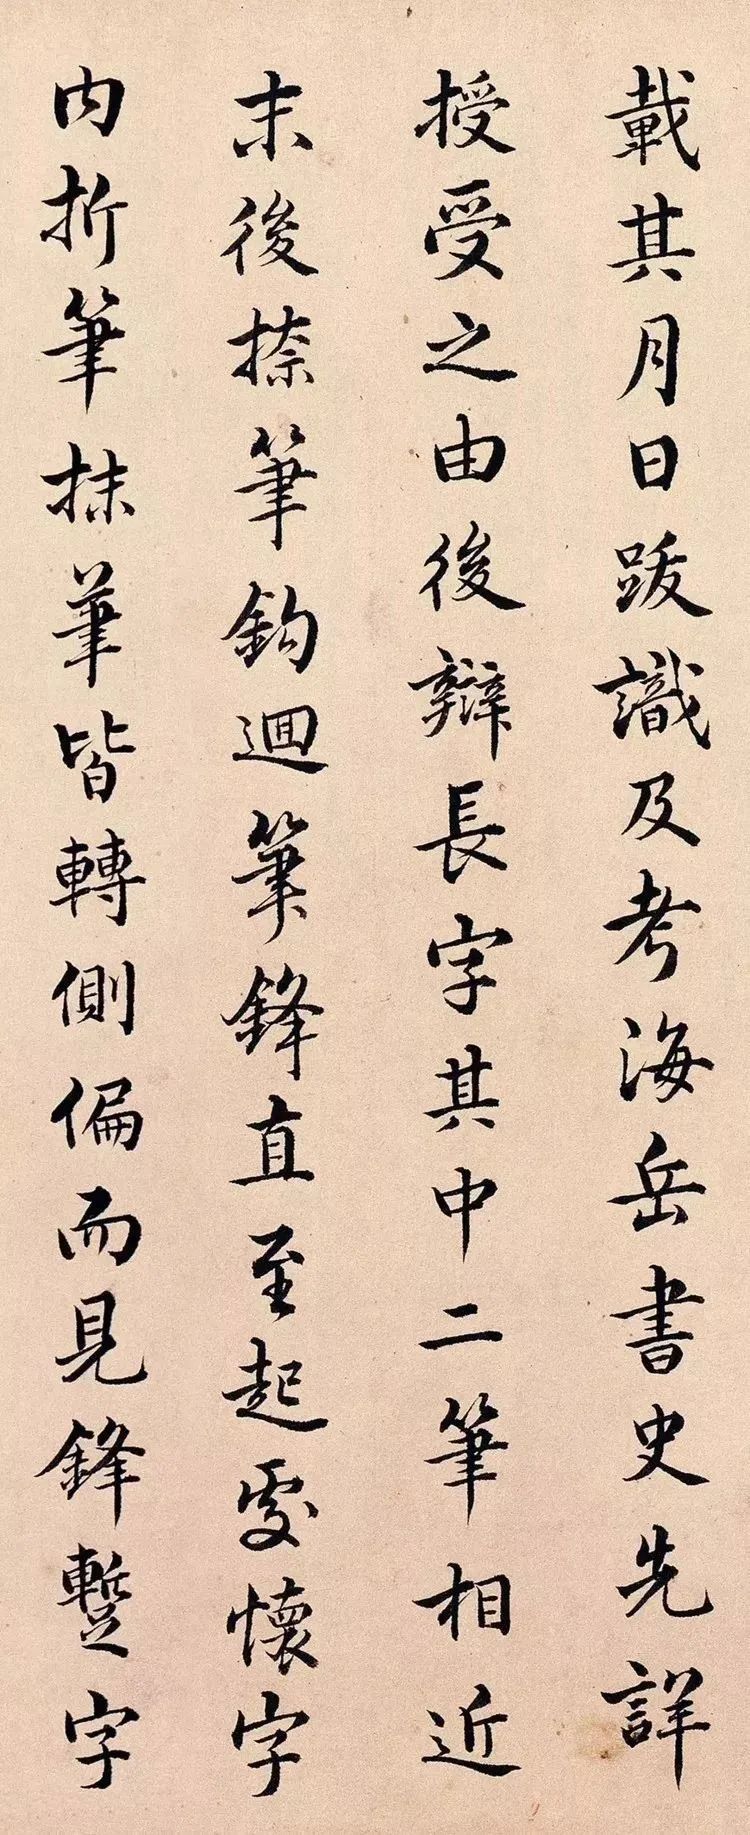 載其月日跋識及考海岳書史先詳
授受之由後辯長字其中二筆相近
末後捺筆鈎迴筆鋒直至起處懷字
内折筆抹筆皆轉側偏而見鋒蹔字